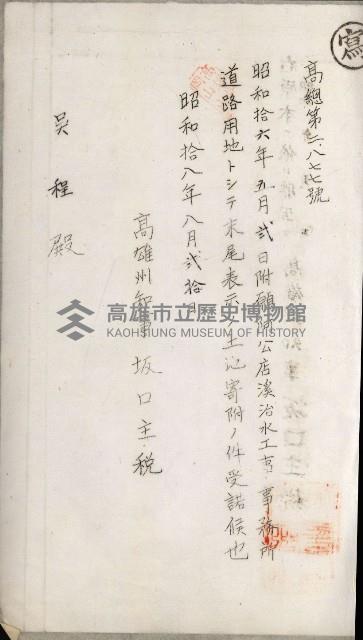 寫
高總第二八七七號
昭和拾六年五月弐日附願阿公店溪治水工事事務所
道路用地トシテ末尾表示ノ土地寄附ノ件受諾候也
昭和拾八年八月弐拾日
高雄州知事坂口主税
吳程殿
高雄市立歷史博物館
KAOHSIUNG MUSEUM OF HISTORY